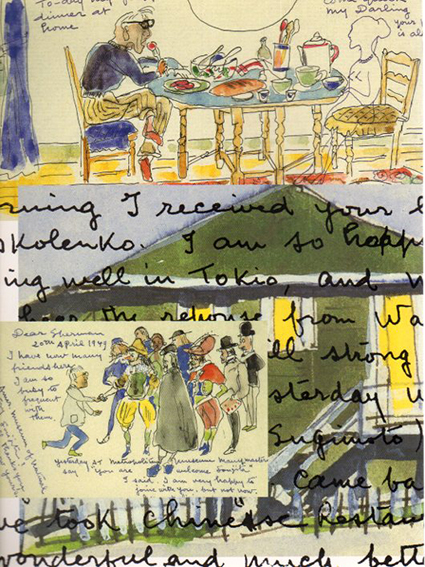 To-day my
dinner at
home
my Darling
your
is al
rning I received your l
Kolenko. I am so happ
ing well in Tokio, and w
from Wa
ll strong
sterday w
Sugimoto)
Came ba
ve took Chinese Restau
wonderful and much bett
Dear Sherman
20th April 1949
I have now many
friends here
I am so
to
frequent
with
them.
yesterday at Metropolitan Museum many masters
say "You are welcome
I said I am very happy to
join with you, but not now.